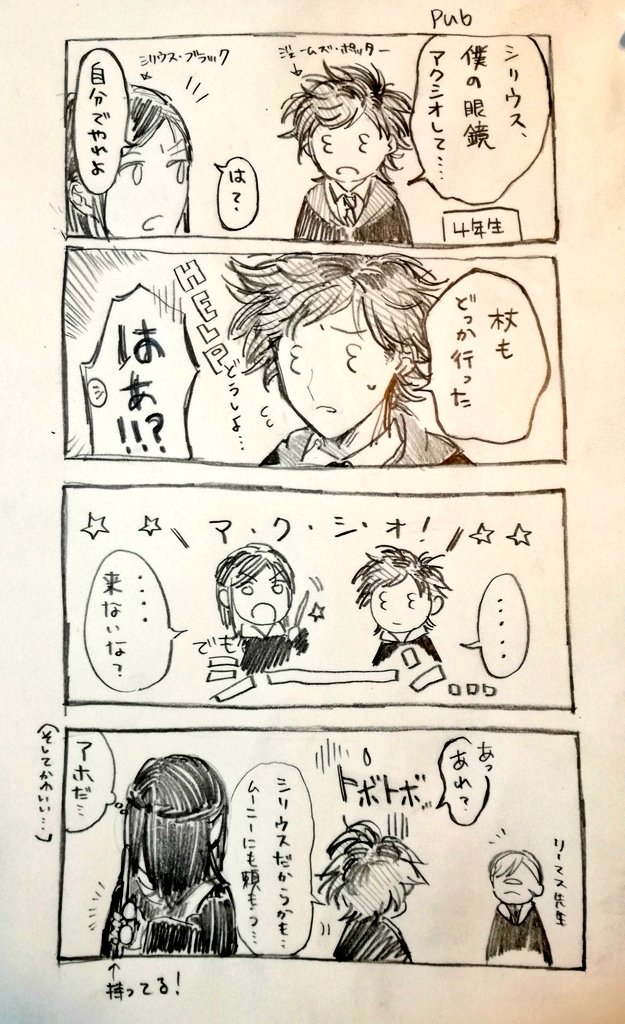 Pub
シリウス、
僕の眼鏡
アクシオして…
ジェームズ・ポッター
シリウス・ブラック
は?
自分でやれよ
4年生
杖も
どっか行った
HELP
どうしよ…
はぁ!!?
シ
ア・ク・シ・オ!
・・・・・
でも
・・・・
来ないな?
リーマス先生
あっ
あれ?
トボトボ…
シリウスだからかも…
ムーニーにも頼もっ…
アホだ…
(そしてかわいい…)
↑
持ってる!